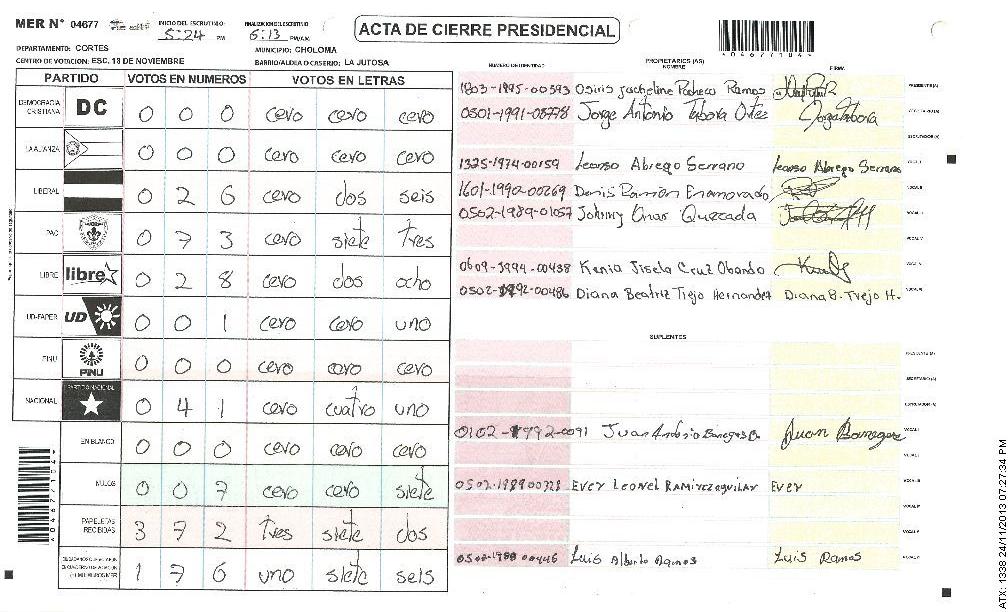 MER N° 04677
INICIO DEL ESCRUTINIO: 5:24 PM
FINALIZACION DEL ESCRUTINIO 6:13 PM/AM
ACTA DE CIERRE PRESIDENCIAL
DEPARTAMENTO: CORTES
MUNICIPIO: CHOLOMA
CENTRO DE VOTACION: ESC. 18 DE NOVIEMBRE
BARRIO/ALDEA O CASERIO: LA JUTOSA
PARTIDO VOTOS EN NUMEROS VOTOS EN LETRAS
DEMOCRACIA CRISTIANA DC 0 0 0 cero cero cero
LA ALIANZA 0 0 0 cero cero cero
LIBERAL 0 2 6 cero dos seis
PAC 0 7 3 cero siete tres
LIBRE libre 0 2 8 cero dos ocho
UD-FAPER UD 0 0 1 cero cero uno
PINU PINU 0 0 0 cero cero cero
NACIONAL PARTIDO NACIONAL 0 4 1 cero cuatro uno
EN BLANCO 0 0 0 cero cero cero
NULOS 0 0 7 cero cero siete
PAPELETAS RECIBIDAS 3 7 2 tres siete dos
1 7 6 uno siete seis
NUMERO DE IDENTIDAD
PROPIETARIOS (AS)
NOMBRE
FIRMA
1803-1995-00593 Osiris Jackeline Pacheco Ramos PRESIDENTE (A)
0501-1991-08778 Jorge Antonio Tabora Ortez JorgeTabora SECRETARIO (A)
ESCRUTADOR (A)
1325-1974-00159 Leonso Abrego Serrano Leonso Abrego Serrano VOCAL I
1601-1990-00269 Denis Ramon Enamorado VOCAL II
0502-1989-01057 Johnny Omar Quezada
VOCAL IV
0609-1994-00438 Kenia Jisela Cruz Obando
0502-1992-00486 Diana Beatriz Trejo Hernandez Diana B. Trejo H.
SUPLENTES
PRESIDENTE (A)
SECRETARIO (A)
ESCRUTADOR (A)
0102-1992-0091 Juan Antonio Banegas B. Juan Banegas VOCAL I
0502-1989 00728 EVER LEONEL RAMIREZ AGUILAR EVER
0502-1988 00446 Luis Alberto Ramos Luis Ramos
*04677104*
ATX: 1338 24/11/2013 07:27:34 PM